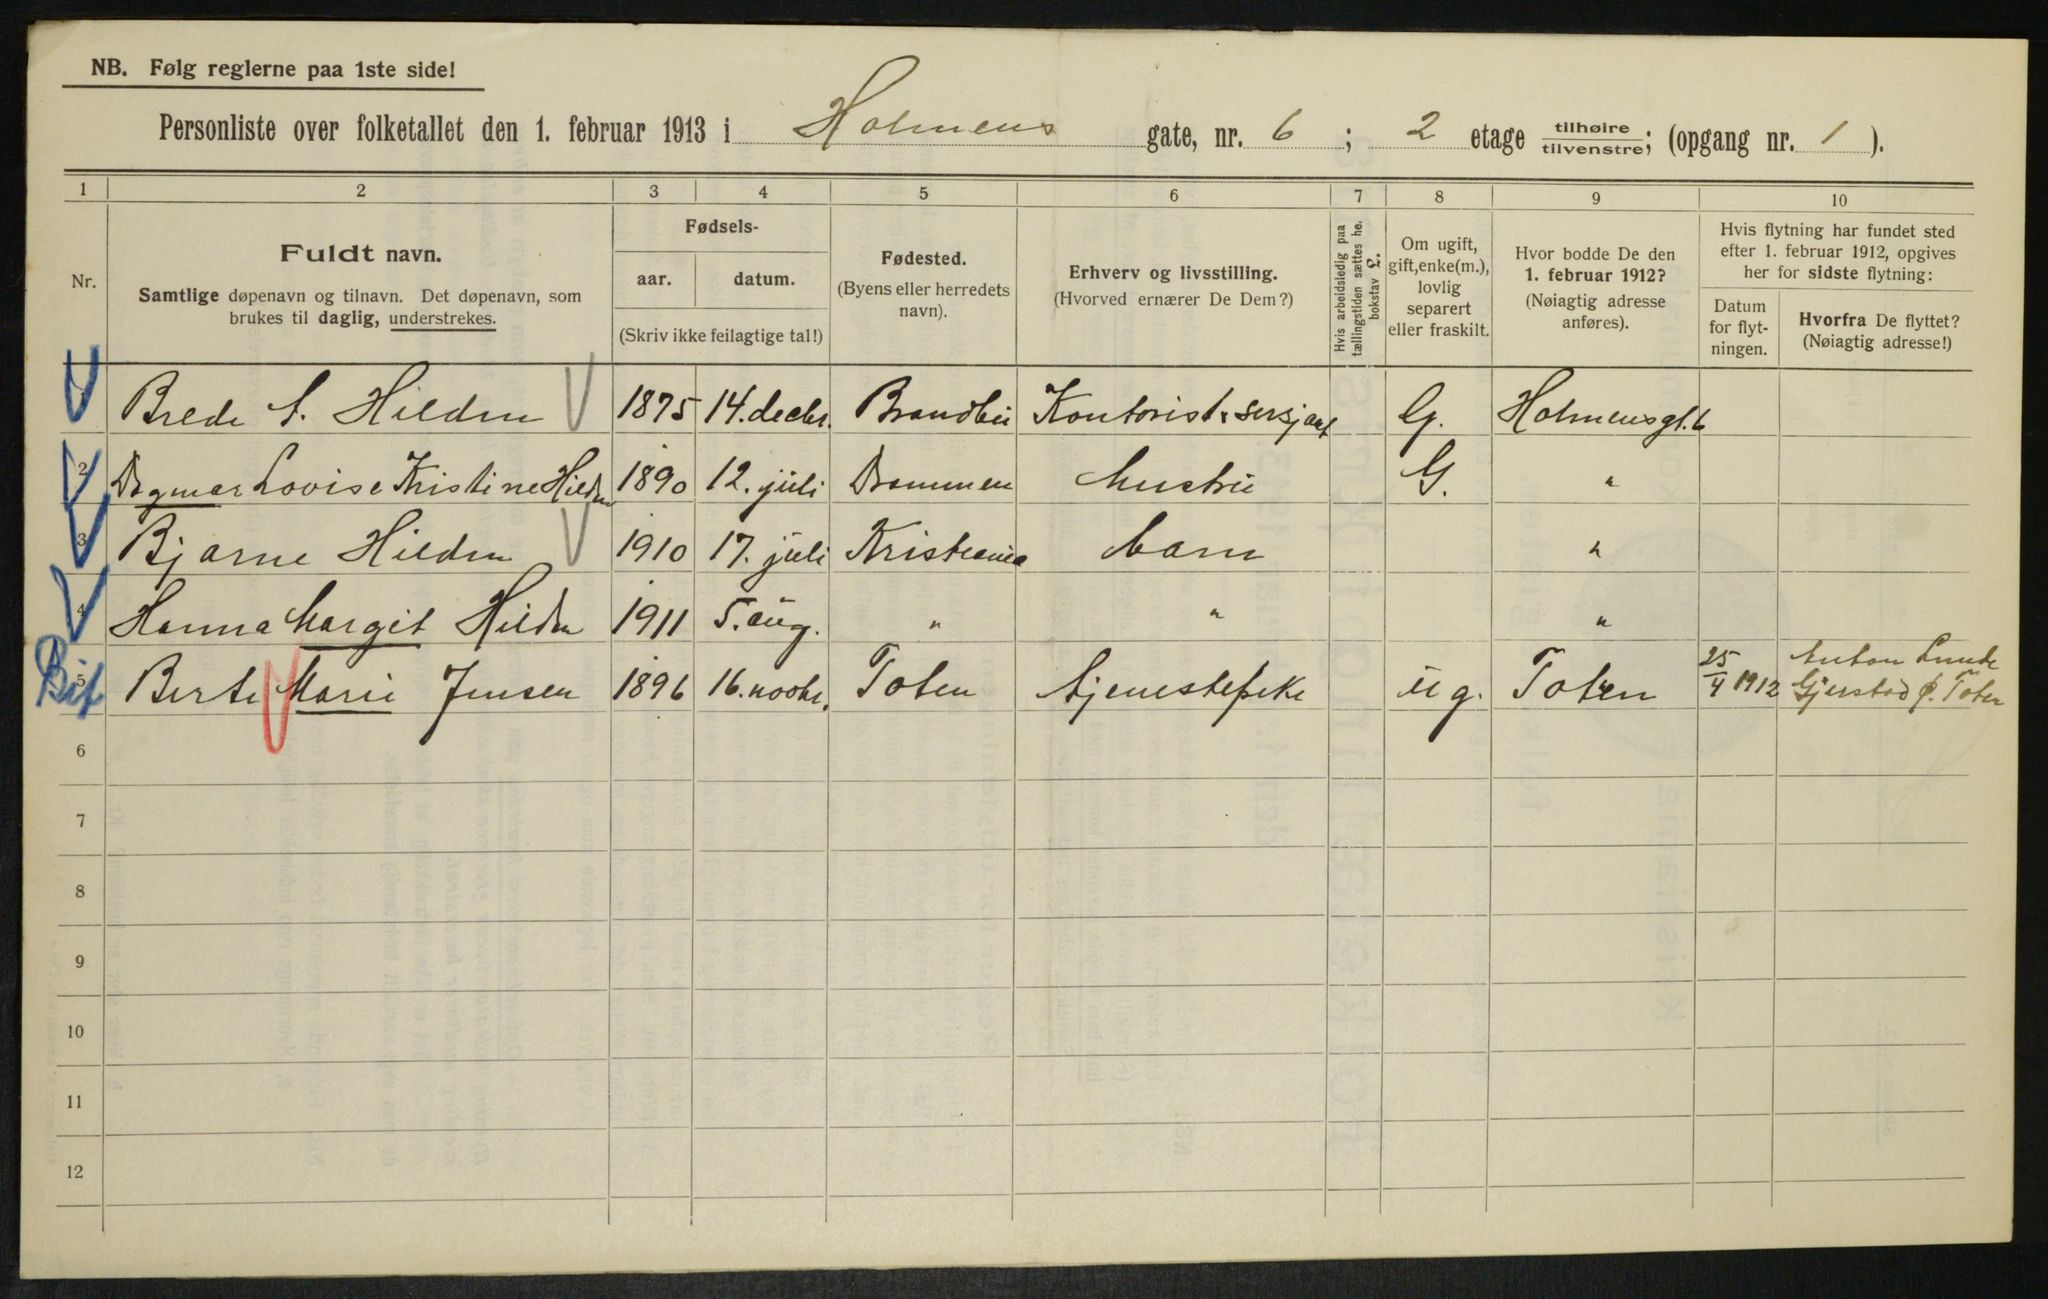 NB. Følg reglerne paa 1ste side!
Personliste over folketallet den 1. februar 1913 i Holmens gate, nr. 6 ; 2 etage tilhøire / tilvenstre; (opgang nr. 1 ).
1 2 3 4 5 6 7 8 9 10
Nr.
Fuldt navn.
Samtlige døpenavn og tilnavn. Det døpenavn, som
brukes til daglig, understrekes.
Fødsels-
aar. datum.
(Skriv ikke feilagtige tal!)
Fødested.
(Byens eller herredets
navn).
Erhverv og livsstilling.
(Hvorved ernærer De Dem?)
Hvis arbeidsledig paa
tællingstiden sættes he.
bokstav L.
Om ugift,
gift, enke(m.),
lovlig
separert
eller fraskilt.
Hvor bodde De den
1. februar 1912?
(Nøiagtig adresse
anføres).
Hvis flytning har fundet sted
efter 1. februar 1912, opgives
her for sidste flytning:
Datum
for flyt-
ningen.
Hvorfra De flyttet?
(Nøiagtig adresse!)
Brede A. Hilden 1875 14. decbr. Brandbu Kontorist & sersjant G. Holmensgt. 6
2 Dagmar Lovise Kristine Hilden 1890 12. juli Drammen hustru G. "
3 Bjarne Hilden 1910 17. juli Kristiania barn "
4 Hanna Margit Hilden 1911 5. aug. " " "
Bif
5 Berte Marie Jensen 1896 16. novbr. Toten tjenestepike ug. Toten 25/4 1912 Anton Lunde
Gjerstad p. Toten
6
7
8
9
10
11
12